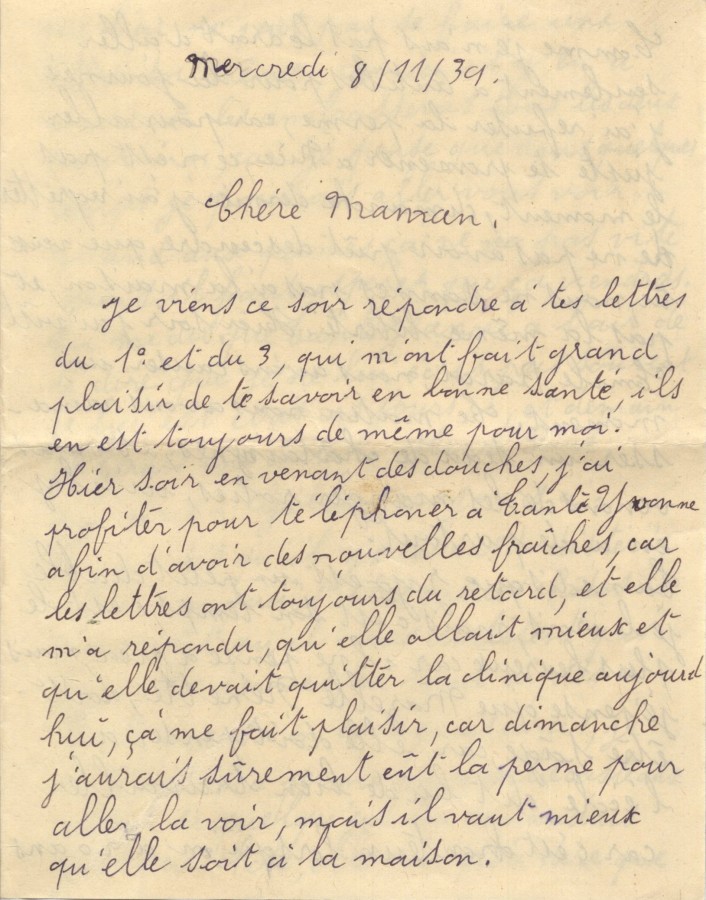 Mercredi 8/11/39.
Chére Maman.
je viens ce soir répondre à tes lettres
du 1° et du 3, qui m'ont fait grand
plaisir de te savoir en bonne santé, ils
en est toujours de même pour moi.
Hier soir en venant des douches, j'ai
profiter pour téléphoner à Tante Yvonne
afin d'avoir des nouvelles fraîches, car
les lettres ont toujours du retard, et elle
m'a répondu, qu'elle allait mieux et
qu'elle devait quitter la clinique aujourd
hui, çà me fait plaisir, car dimanche
j'aurais sûrement eût la perme pour
aller, la voir, mais il vaut mieux
qu'elle soit à la maison.